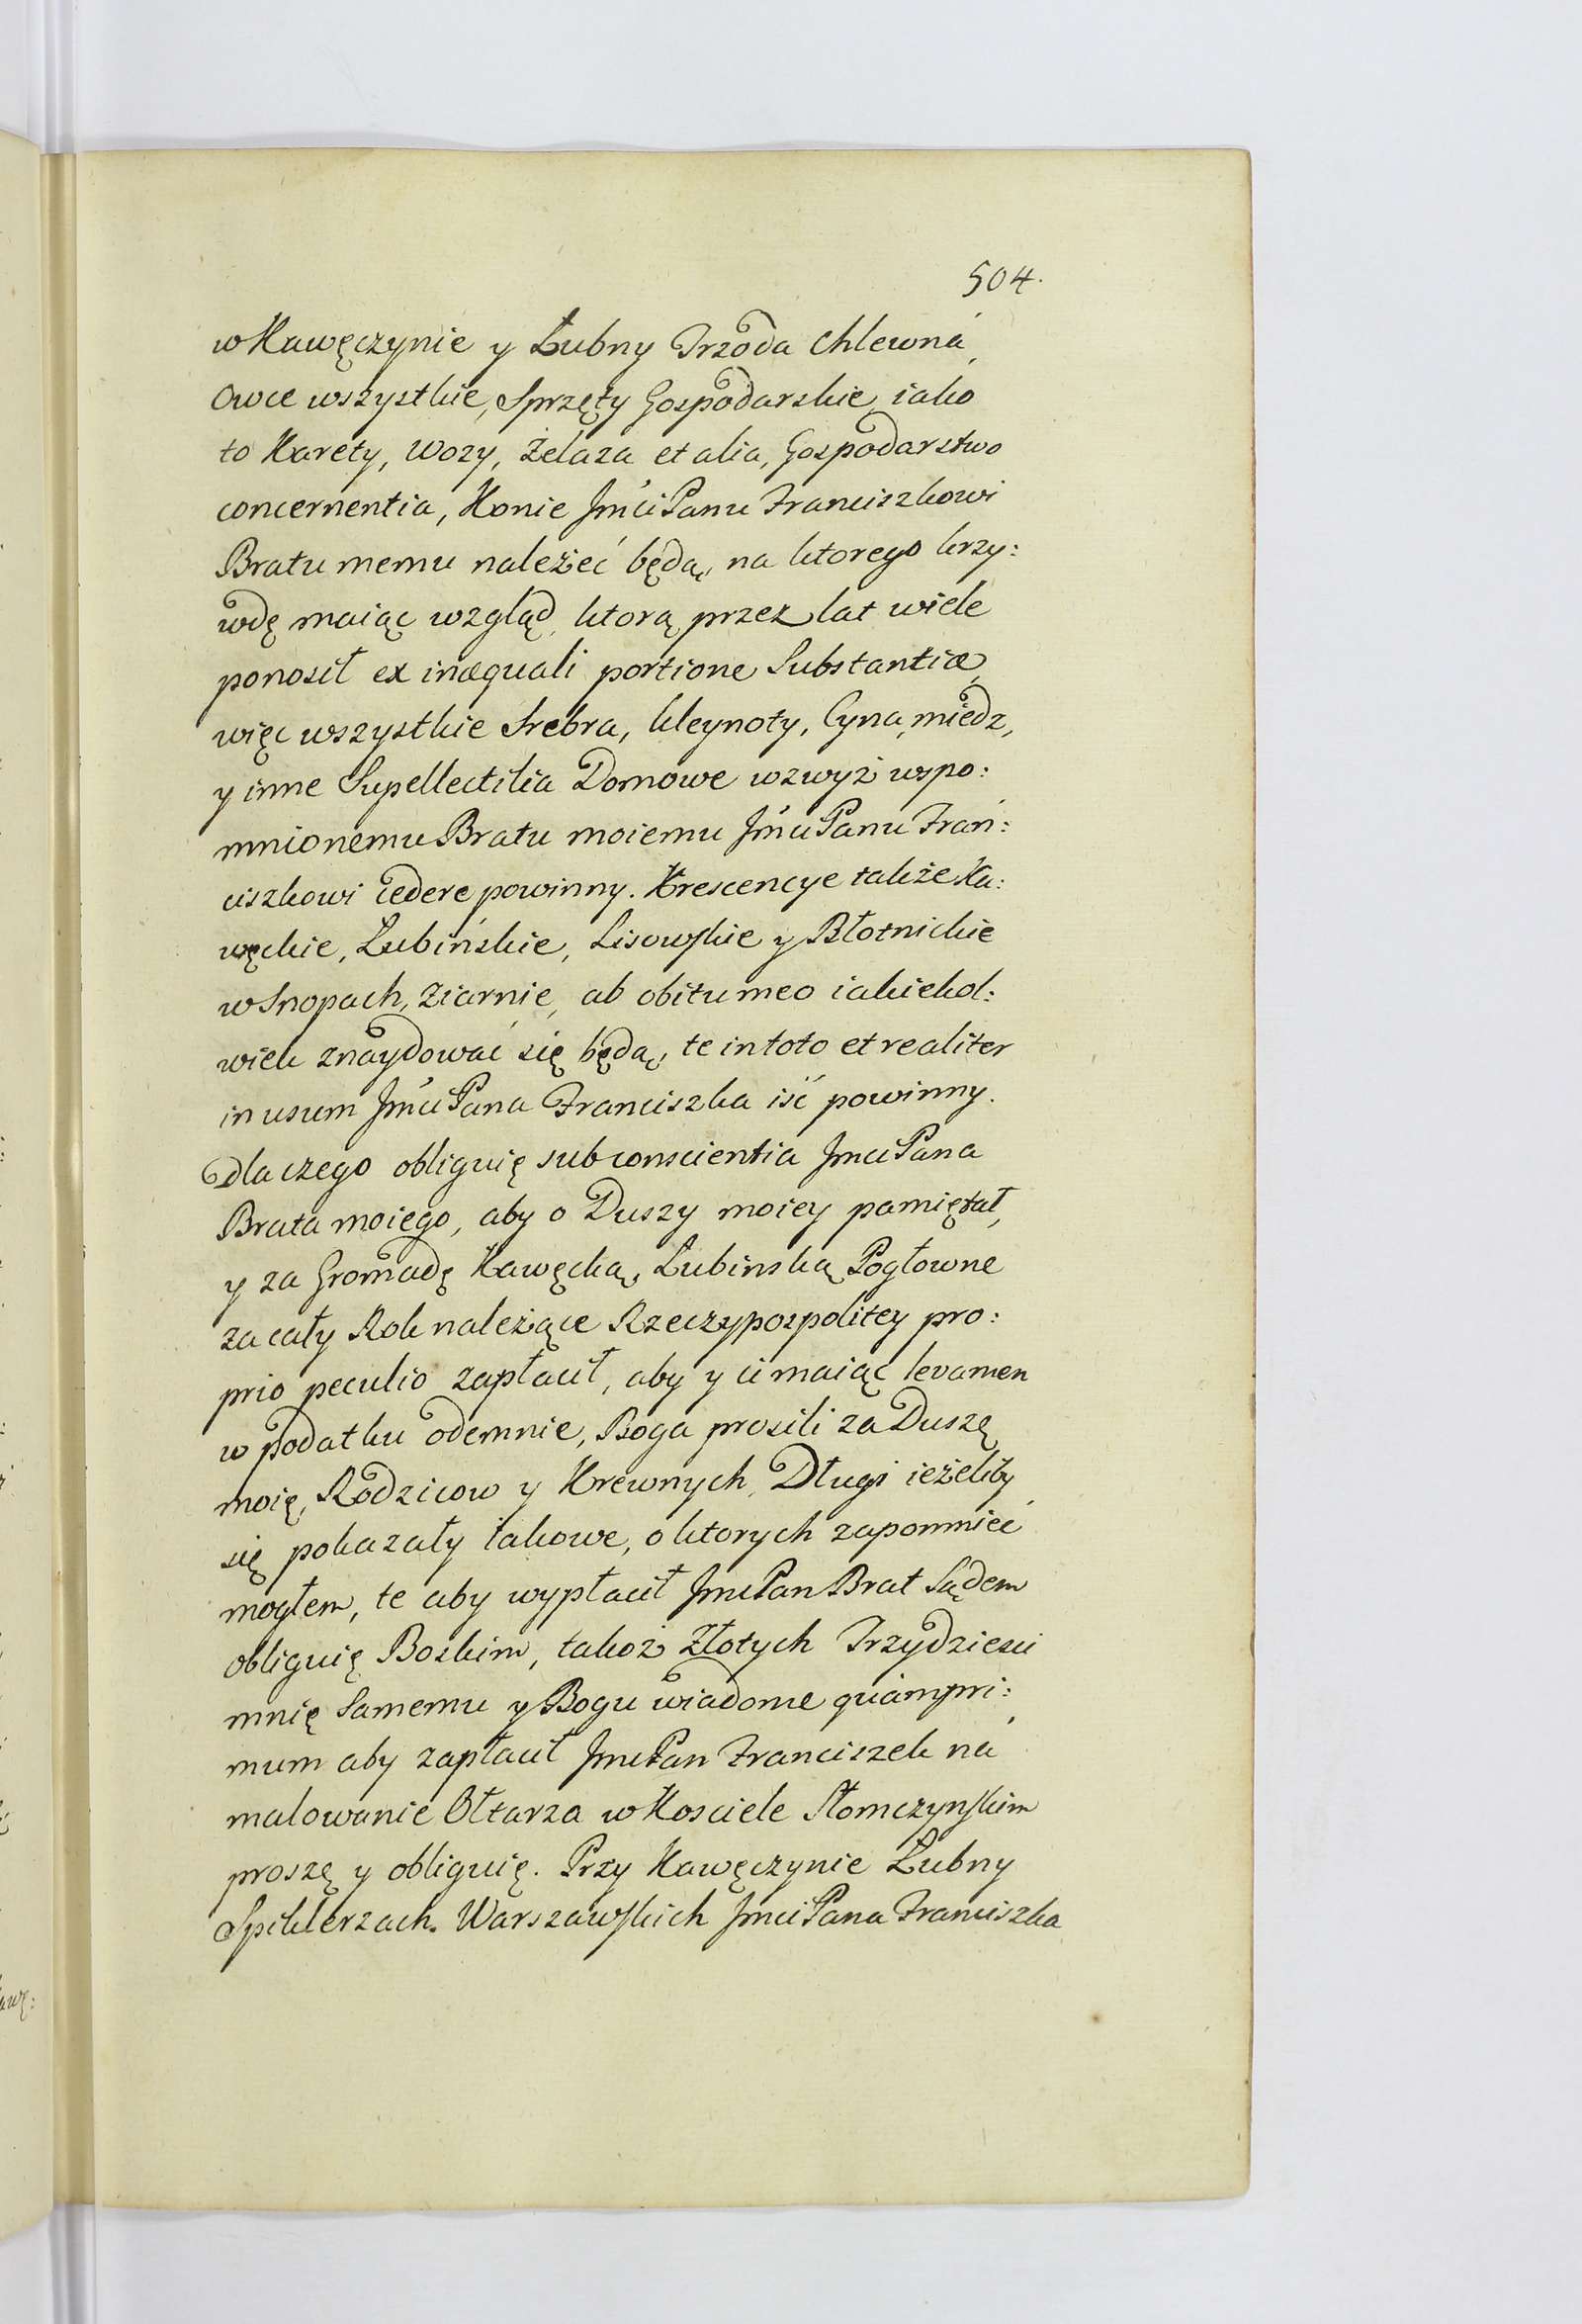 504.
w Kawęczynie y Łubny Trzoda Chlewná,
Owce wszystkie, Sprzęty Gospodarskie, iako
to Karety, Wozy, Żelaza et alia, Gospodarstwo
concernentia, Konie Jmći Panu Franciszkowi
Bratu memu należeć będą, na ktorego krzy:
wdę maiąc wzgląd, ktorą przez lat wiele
ponosił ex inæquali portione Substantiæ,
więc wszystkie Srebra, kleynoty, Cyna, miedz,
y inne Supellectilia Domowe wzwyż wspo:
mnionemu Bratu moiemu Jmći Panu Fran:
ciszkowi cedere powinny. Krescencye także Ka:
węckie, Łubińskie, Lisowskie y Błotnickie
w Snopach, Ziarnie, ab obitu meo iakiekol:
wiek znaydować się będą, te in toto et realiter
in usum Jmći Pana Franciszka iść powinny.
Dla czego obliguię sub conscientia Jmci Pana
Brata moiego, aby o Duszy moiey pamiętał,
y za Gromadę Kawęcką, Łubinską Pogłowne
za cały Rok należące Rzeczypospolitey pro:
prio peculio zapłacił, aby y ci maiąc levamen
w podatku odemnie, Boga prosili za Duszę
moię, Rodzicow y Krewnych, Długi ieżeliby
się pokazały iakowe, o ktorych zapomnieć
mogłem, te aby wypłacił Jmci Pan Brat Sądem
obliguię Boskim, takoż Złotych Trzydziesci
mnię Samemu y Bogu wiadome quámpri:
mum aby zapłacił Jmci Pan Franciszek ná
malowanie Ołtarza w Kosciele Słomczynskim
proszę y obliguię. Przy Kawęczynie Łubny
Spiklerzach Warszawskich Jmci Pana Franciszka